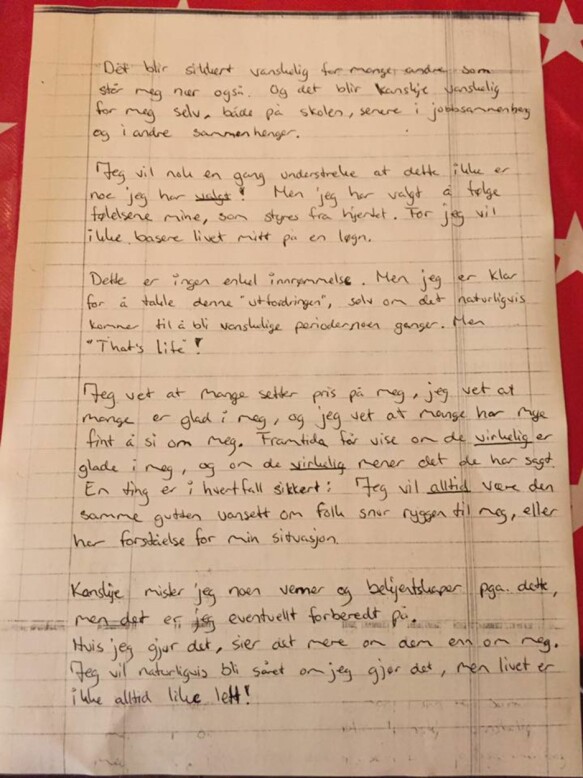 Det blir sikkert vanskelig for mange andre som
står meg nær også. Og det blir kanskje vanskelig
for meg selv, både på skolen, senere i jobbsammenheng
og i andre sammenhenger.
Jeg vil nok en gang understreke at dette ikke er
noe jeg har valgt! Men jeg har valgt å følge
følelsene mine, som styres fra hjertet. For jeg vil
ikke basere livet mitt på en løgn.
Dette er ingen enkel innrømmelse. Men jeg er klar
for å takle denne "utfordringen", selv om det naturligvis
kommer til å bli vanskelige perioder noen ganger. Men
"That's life"!
Jeg vet at mange setter pris på meg, jeg vet at
mange er glad i meg, og jeg vet at mange har mye
fint å si om meg. Framtida får vise om de virkelig er
glade i meg, og om de virkelig mener det de har sagt.
En ting er i hvertfall sikkert: Jeg vil alltid være den
samme gutten uansett om folk snur ryggen til meg, eller
har forståelse for min situasjon.
Kanskje mister jeg noen venner og bekjentskaper pga. dette,
men det er jeg eventuellt forberedt på.
Hvis jeg gjør det, sier det mere om dem enn om meg.
Jeg vil naturligvis bli såret om jeg gjør det, men livet er
ikke alltid like lett!